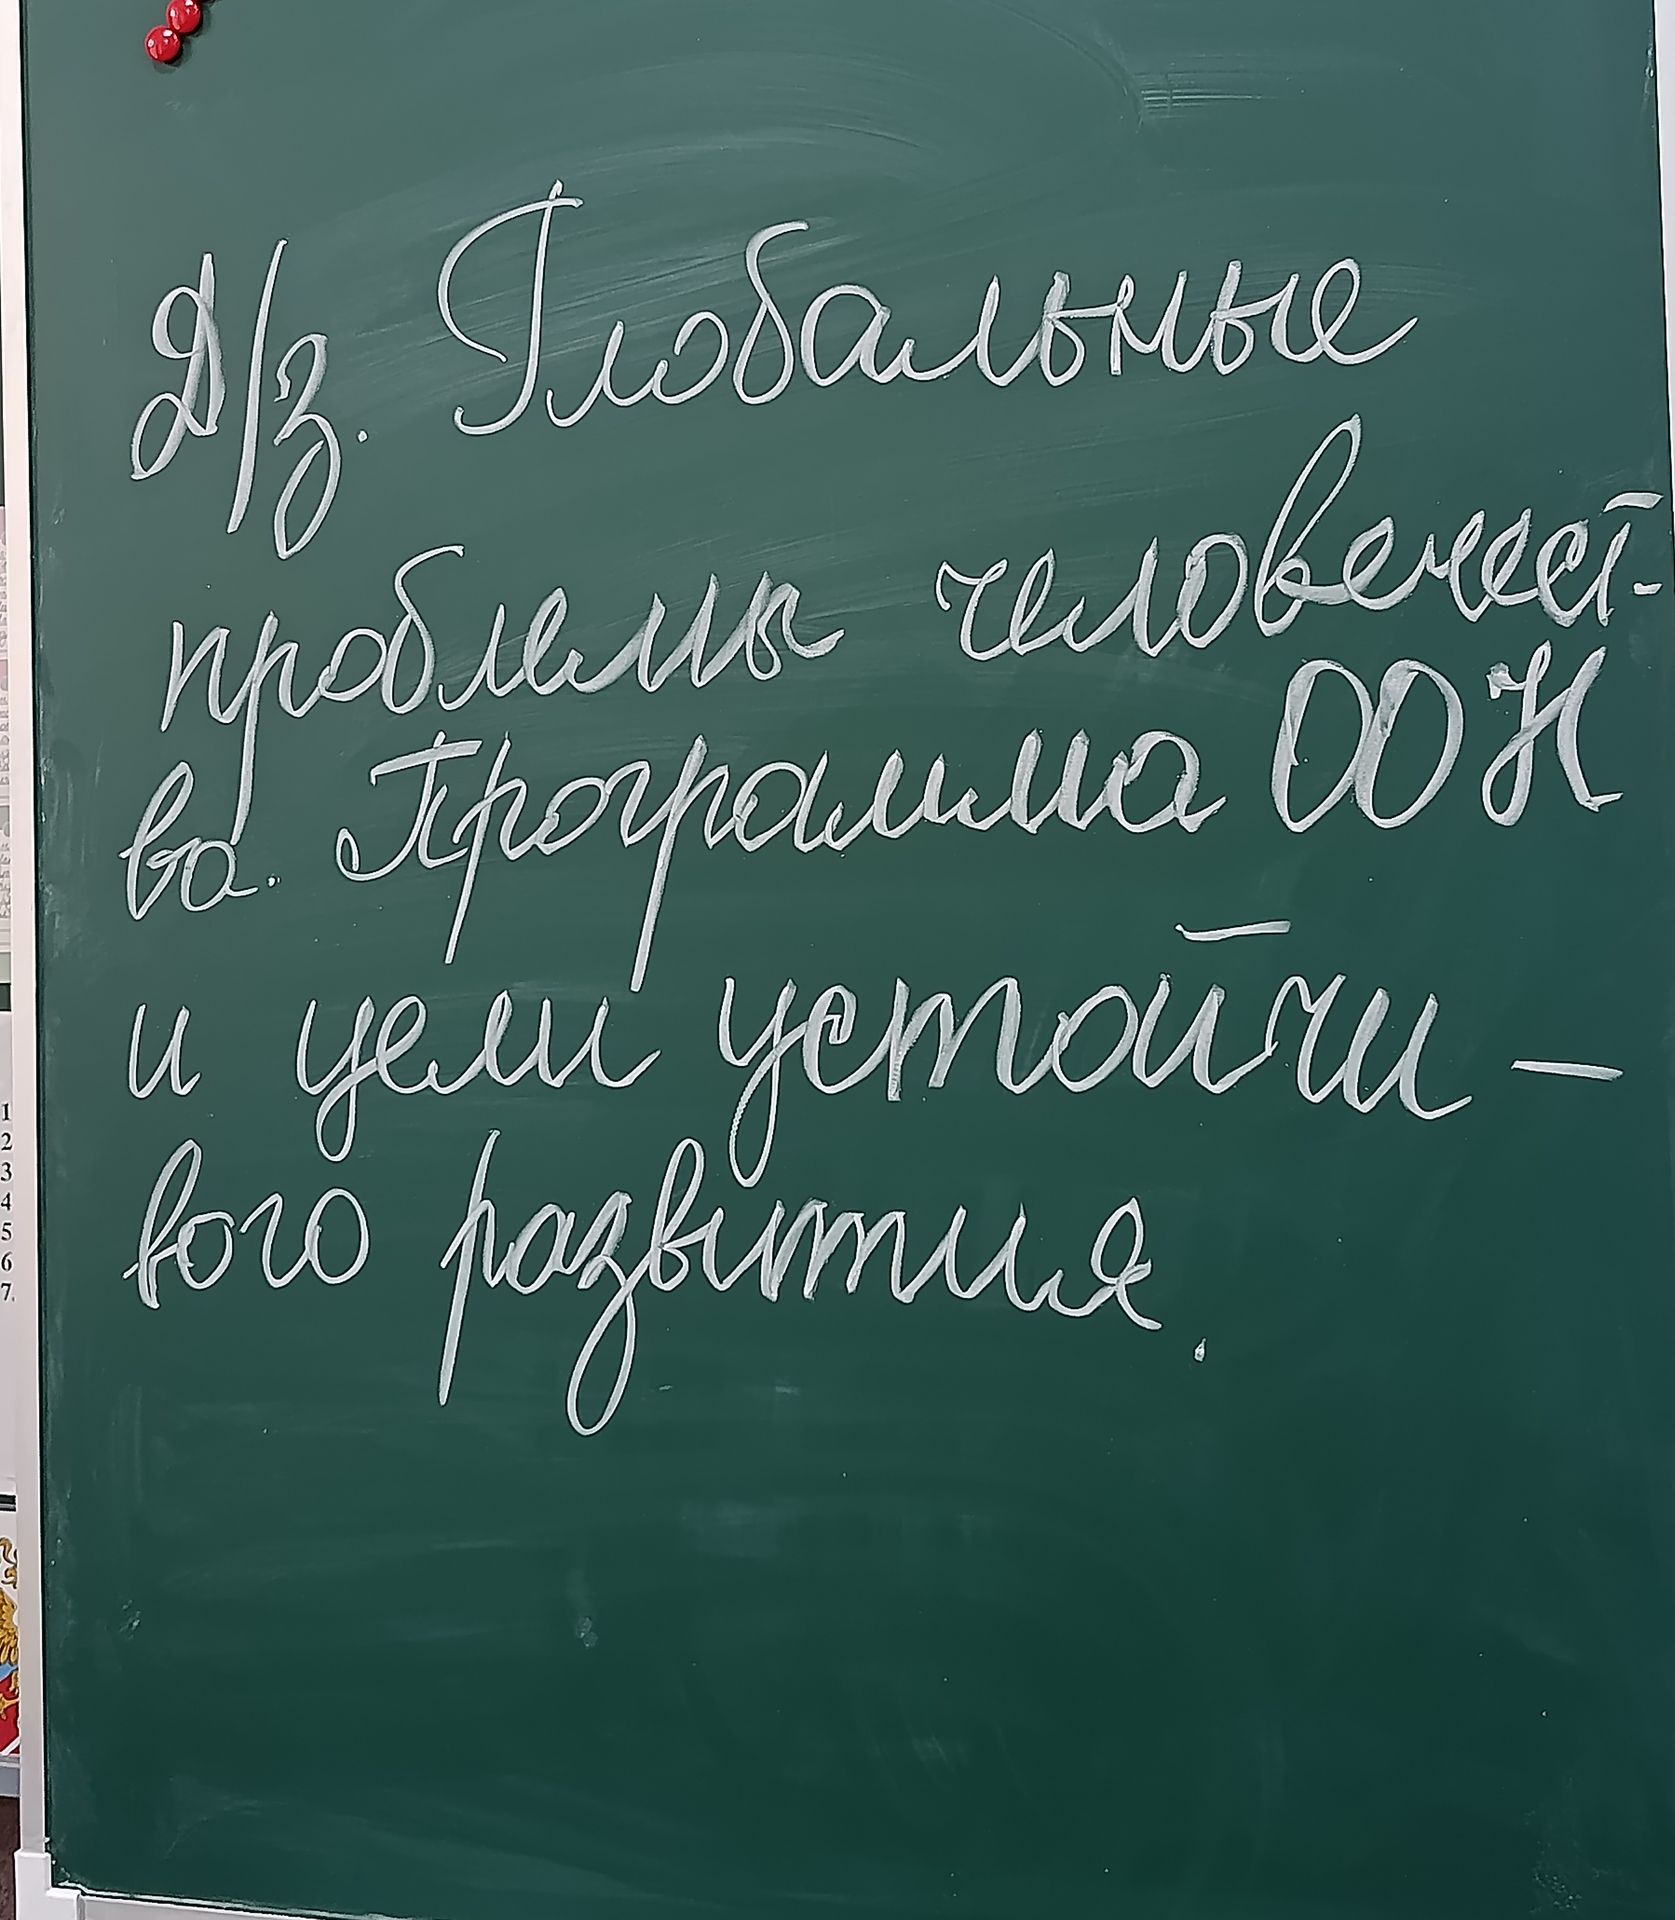 Д/з. Глобальные
проблемы человечест-
ва. Программа ООН
и цели устойчи-
вого развития.
1
2
3
4
5
6
7.